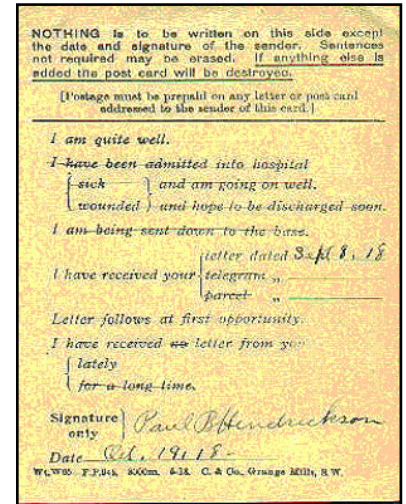 NOTHING is to be written on this side except
the date and signature of the sender. Sentences
not required may be erased. If anything else is
added the post card will be destroyed.
[Postage must be prepaid on any letter or post card
addressed to the sender of this card.]
I am quite well.
I have been admitted into hospital
sick and am going on well.
wounded and hope to be discharged soon.
I am being sent down to the base.
letter dated Sept 8, 18
I have received your telegram „
parcel „
Letter follows at first opportunity.
I have received no letter from you
lately
for a long time.
Signature only Paul B Hendrickson
Date Oct. 19, 18 -
6-18. C. & Co., Grange Mills, S.W.